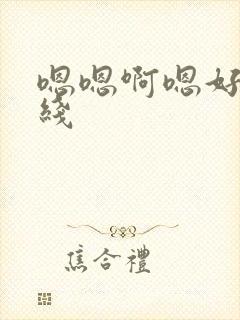 嗯嗯啊嗯好
綫
焦合禮